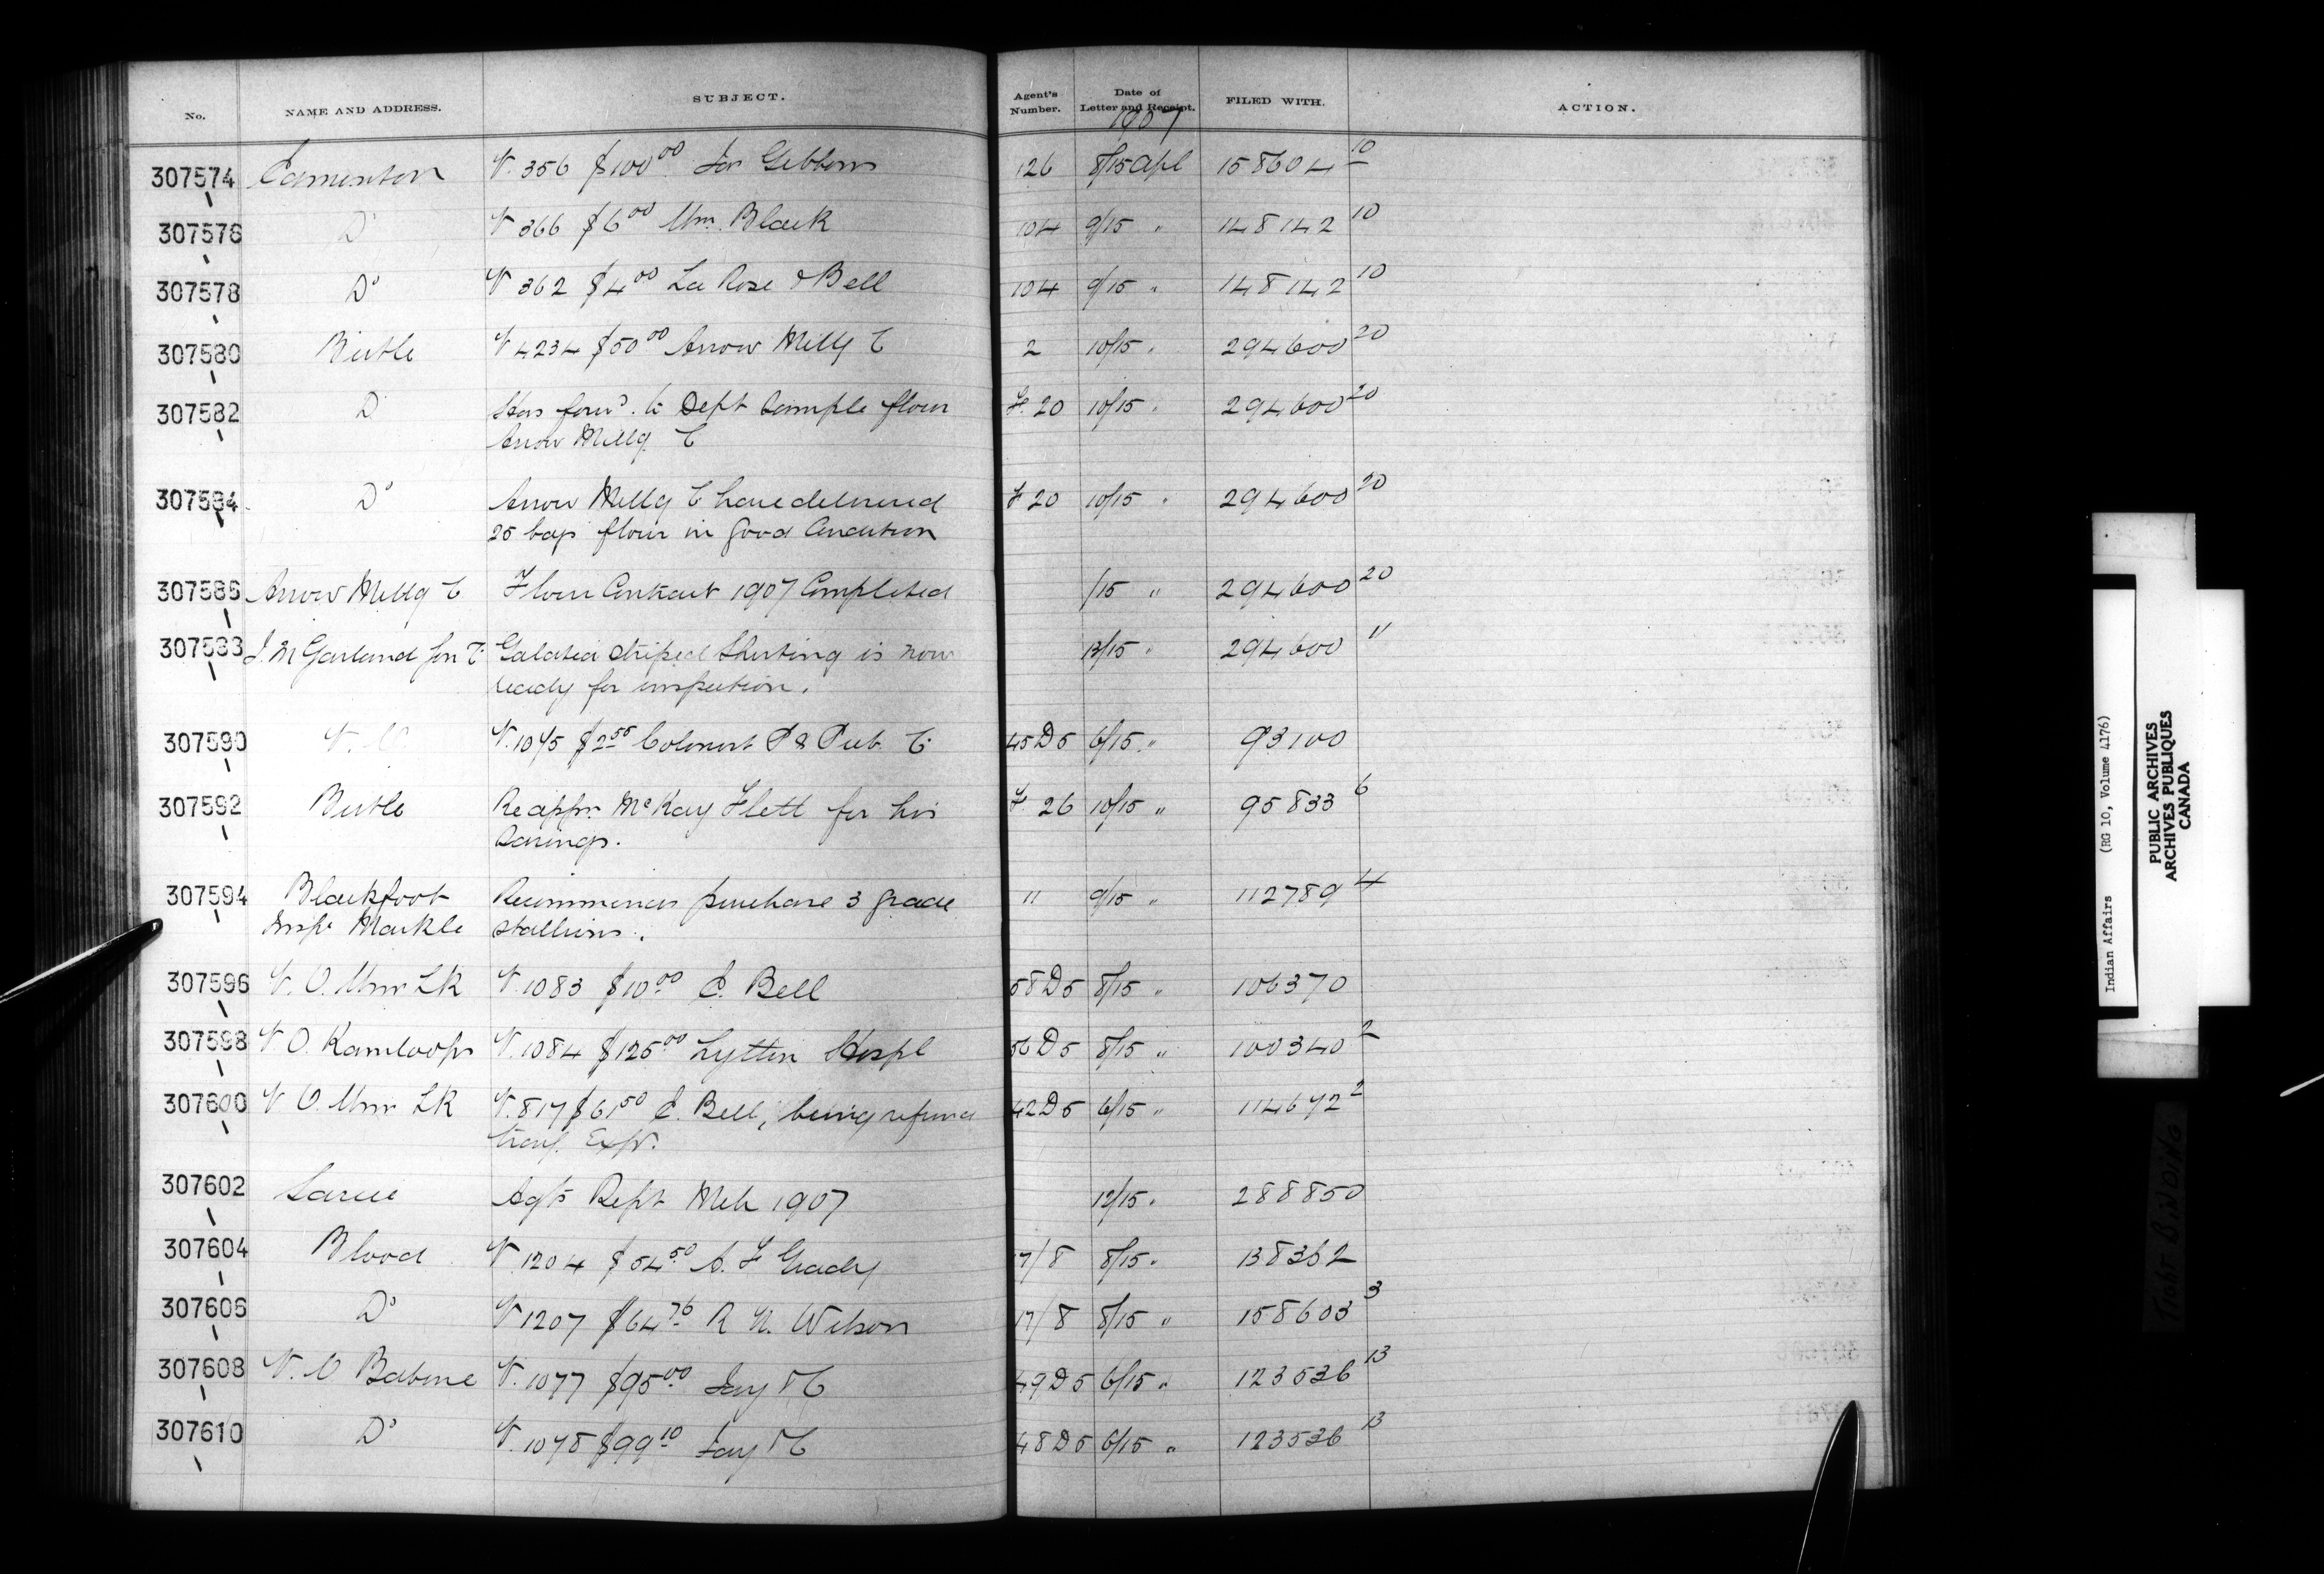 No. NAME AND ADDRESS. SUBJECT. Agent's Number. Date of Letter and Receipt. FILED WITH. ACTION.
1907
307574 Edmonton V. 356 $100.00 Jas Gibbons 126 8/15 Apl 158604 10
307576 Do V 366 $6 00 Wm. Black 104 9/15 " 148142 10
307578 Do V 362 $4 00 La Rose & Bell 104 9/15 " 148142 10
307580 Birtle V 4234 $50 00 Arrow Millg C 2 10/15 " 294600 20
307582 D Has forwd. to Dept Sample flour F. 20 10/15 " 294600 20
Arrow Millg. C
307584 Do Arrow Millg C have delivered F 20 10/15 " 294600 20
25 bags flour in good Condition
307586 Arrow Millg C Flour Contract 1907 Completed /15 " 294600 20
307588 J. M Garland Son C Galatea striped Shirting is now 13/15 " 294600 11
ready for inspection.
307590 V. O V. 1045 $2 Colonist P & Pub. C 45 D5 6/15 " 93100
307592 Birtle Re appn. McKay Flett for his F. 26 10/15 " 95833 6
Savings.
307594 Blackfoot Recommends purchase 3 grade 11 9/15 " 112789 4
Insp. Markle stallions.
307596 V. O. Wms LK V. 1083 $10.00 E. Bell 58 D5 8/15 " 106370
307598 V O. Kamloops V. 1084 $125.00 Lytton Hospl 56 D5 8/15 " 100340 2
307600 V O. Wms LK V. 817 $61 50 E. Bell, being refund 42 D5 6/15 " 114672 2
travg. Exps.
307602 Sarcee Agts Rept Mch 1907 12/15 " 288850
307604 Blood V 1204 $54.50 A. F Grady 17/8 8/15 " 138362
307606 Do V 1207 $64.76 R N. Wilson 17/8 8/15 " 158603 3
307608 V. O Babine V. 1077 $95.00 49 D5 6/15 " 123536 13
307610 Do V. 1078 $99 10 48 D5 6/15 " 123536 13
Indian Affairs (RG 10, Volume 4176)
PUBLIC ARCHIVES
ARCHIVES PUBLIQUES
CANADA
TIGHT BINDING